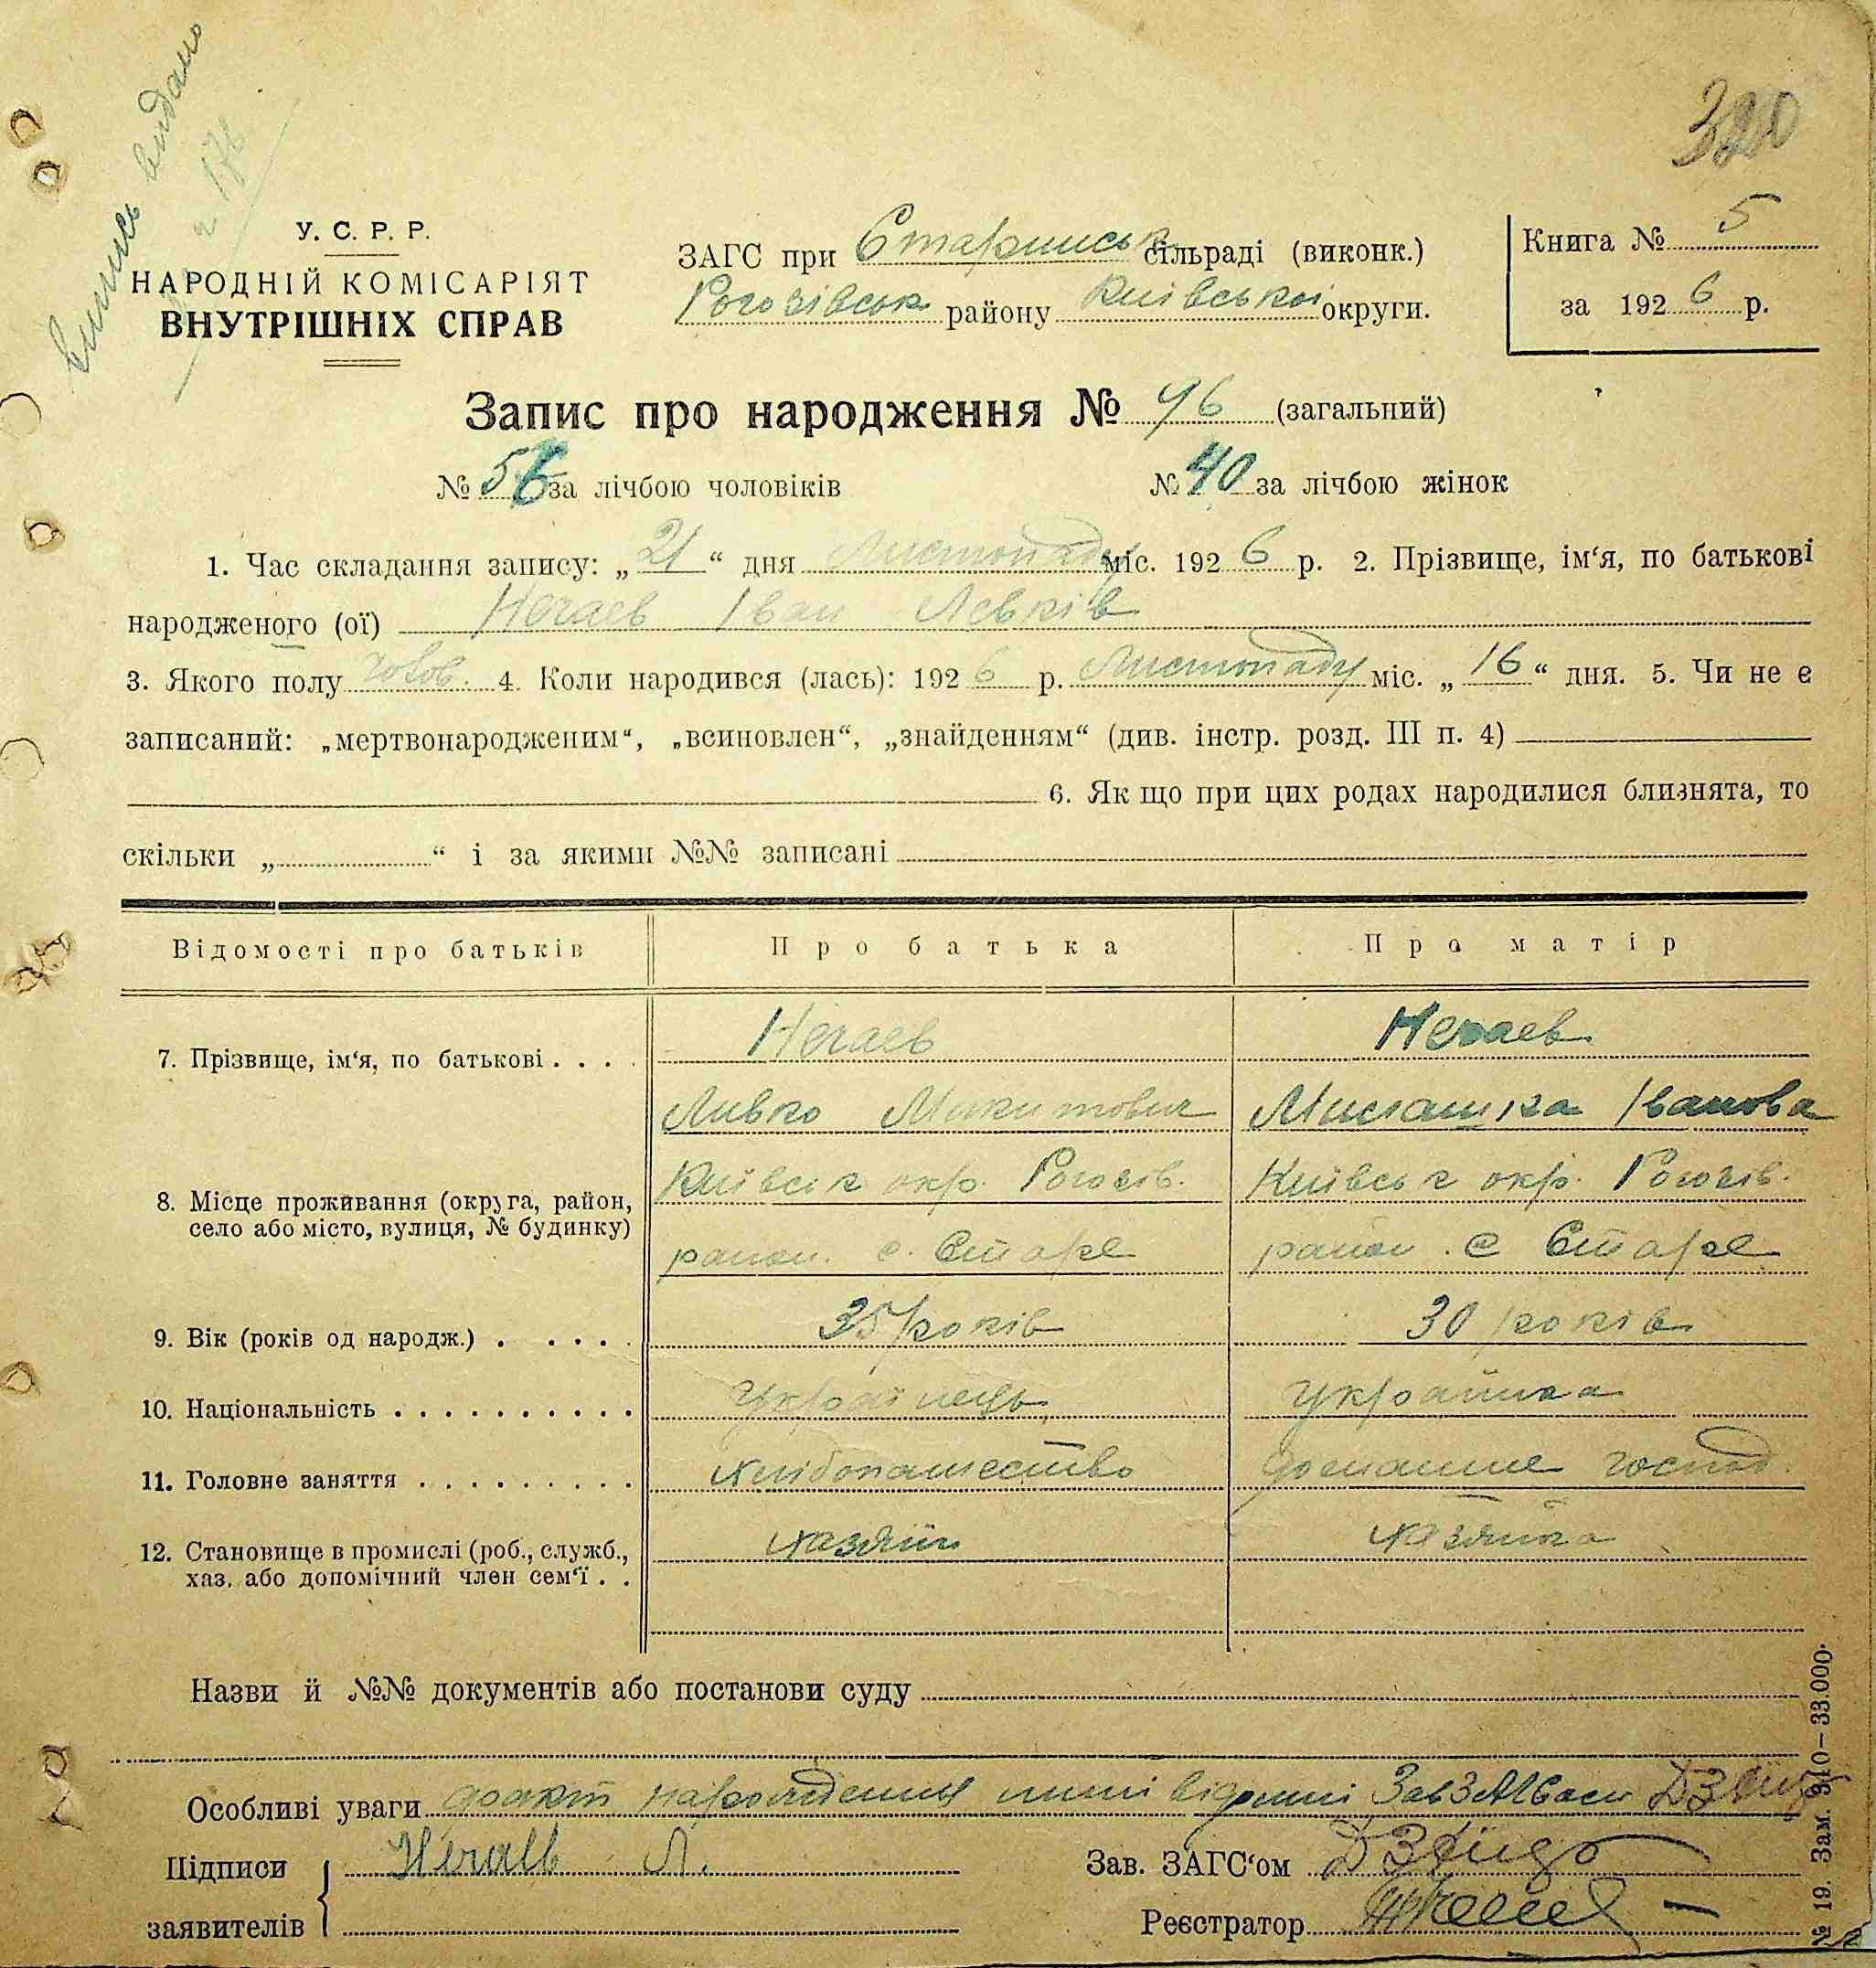 випись видано
320
У. С. Р. Р.
НАРОДНІЙ КОМІСАРІЯТ
ВНУТРІШНІХ СПРАВ
ЗАГС при Старинськ сільраді (виконк.)
Рогозівськ району Київської округи.
Книга № 5
за 1926 р.
Запис про народження № 96 (загальний)
№ 56 за лічбою чоловіків № 40 за лічбою жінок
1. Час складання запису: „21“ дня Листопаду міс. 1926 р. 2. Прізвище, ім‘я, по батькові
народженого (ої) Нечаев Іван Левків
3. Якого полу чолов. 4. Коли народився (лась): 1926 р. Листопаду міс. „16“ дня. 5. Чи не є
записаний: „мертвонародженим“, „всиновлен“, „знайденням“ (див. інстр. розд. III п. 4)
6. Як що при цих родах народилися близнята, то
скільки „ “ і за якими №№ записані
Відомості про батьків Про батька Про матір
7. Прізвище, ім‘я, по батькові . . . . Нечаев Нечаев
Ливко Микитович Іванова
8. Місце проживання (округа, район, Київськ окр. Рогозів. Київськ окр. Рогозів.
село або місто, вулиця, № будинку) район. с. Старе район. с Старе
9. Вік (років од народж.) . . . . . 35 років 30 років
10. Національність . . . . . . . . . . . Українець Українка
11. Головне заняття . . . . . . . . . хлібопашество домашне господ.
12. Становище в промислі (роб., служб., хазяїн хазяйка
хаз. або допомічний член сем‘ї . .
Назви й №№ документів або постанови суду
Особливі уваги факт народження мині відомий
Підписи Нечаев Л. Зав. ЗАГС‘ом
заявителів Реєстратор
№ 19. Зам. 310—33.000.